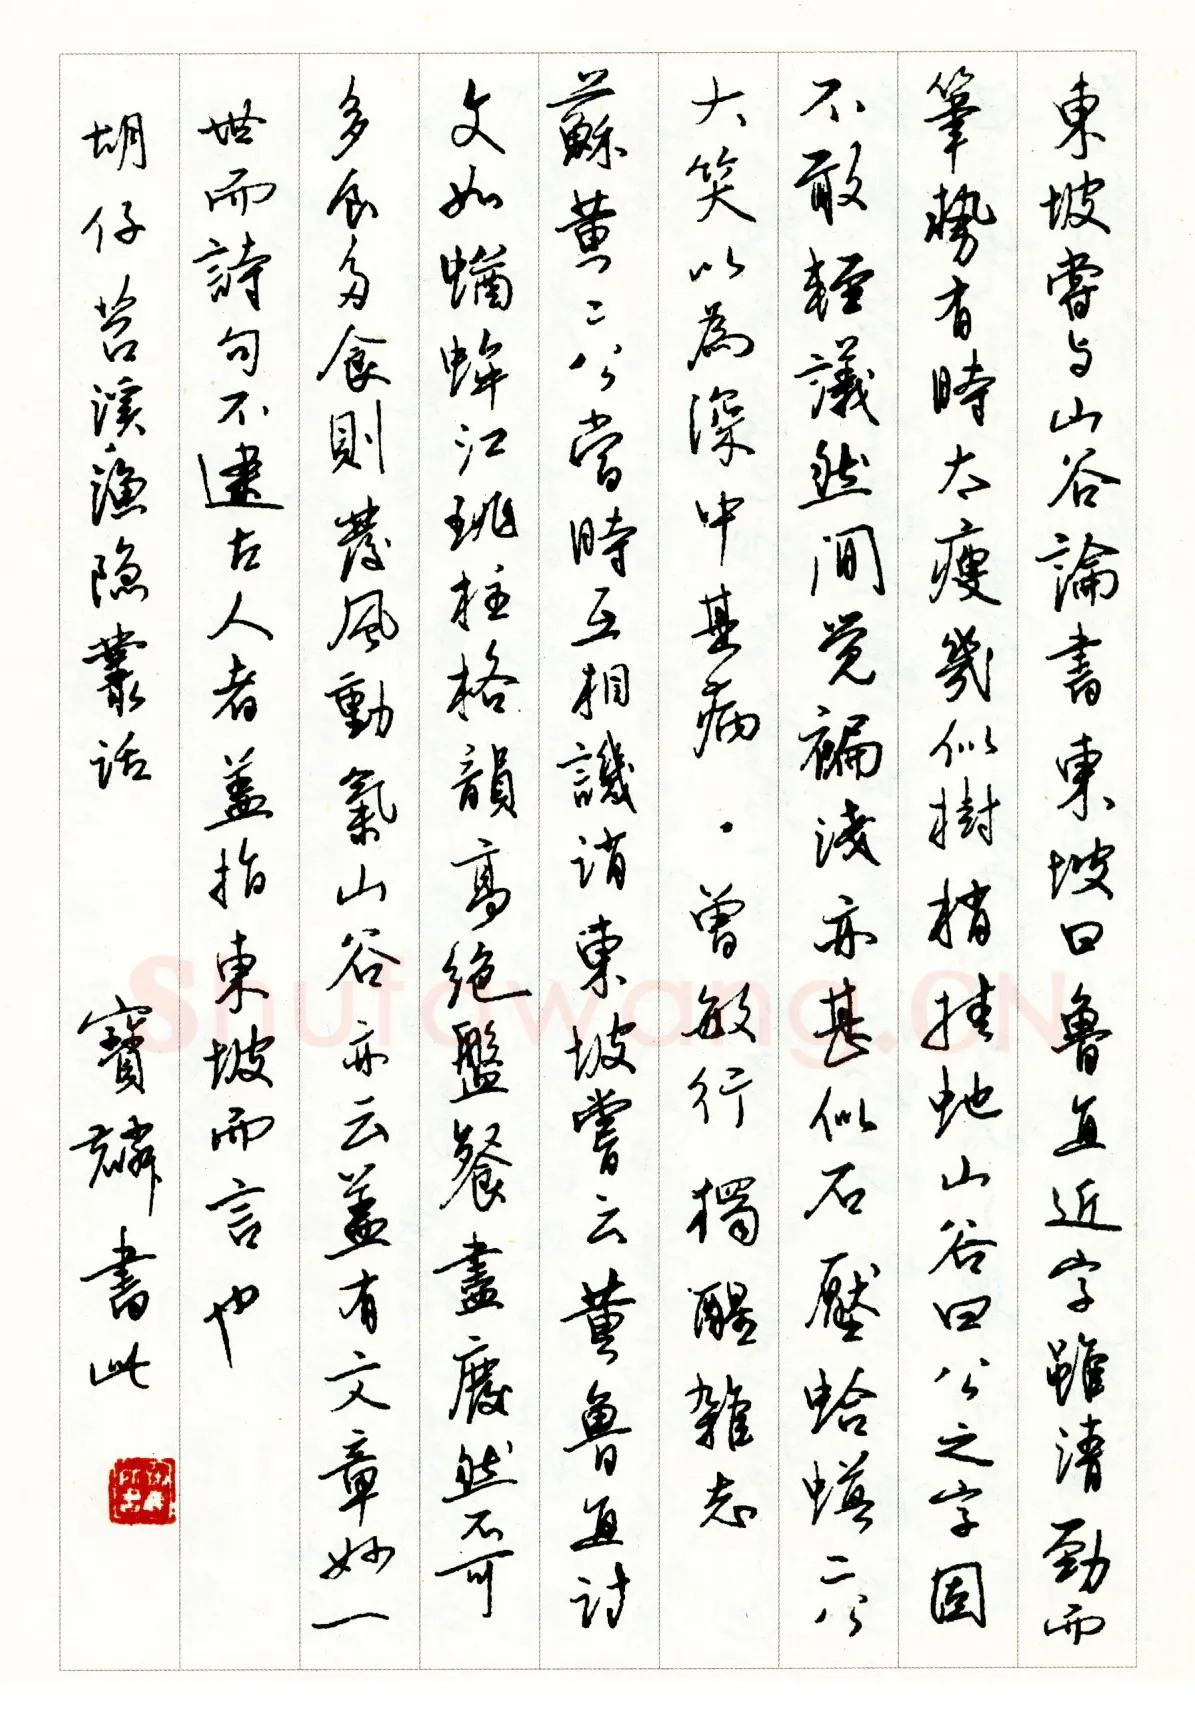 東坡嘗与山谷論書東坡曰魯直近字雖清勁而
筆勢有時太瘦幾似樹梢挂虵山谷曰公之字固
不敢輕議然間覺褊淺亦甚似石壓蛤蟆二公
大笑以為深中其病·曾敏行 獨醒雜志
蘇黄二公當時互相譏誚東坡嘗云黄魯直詩
文如蝤蛑江珧柱格韻高絶盤餐盡廢然不可
多食多食則發風動氣山谷亦云蓋有文章妙一
世而詩句不逮古人者蓋指東坡而言也
胡仔 苕溪漁隐叢話 寶麟書此
Shufawang.CN